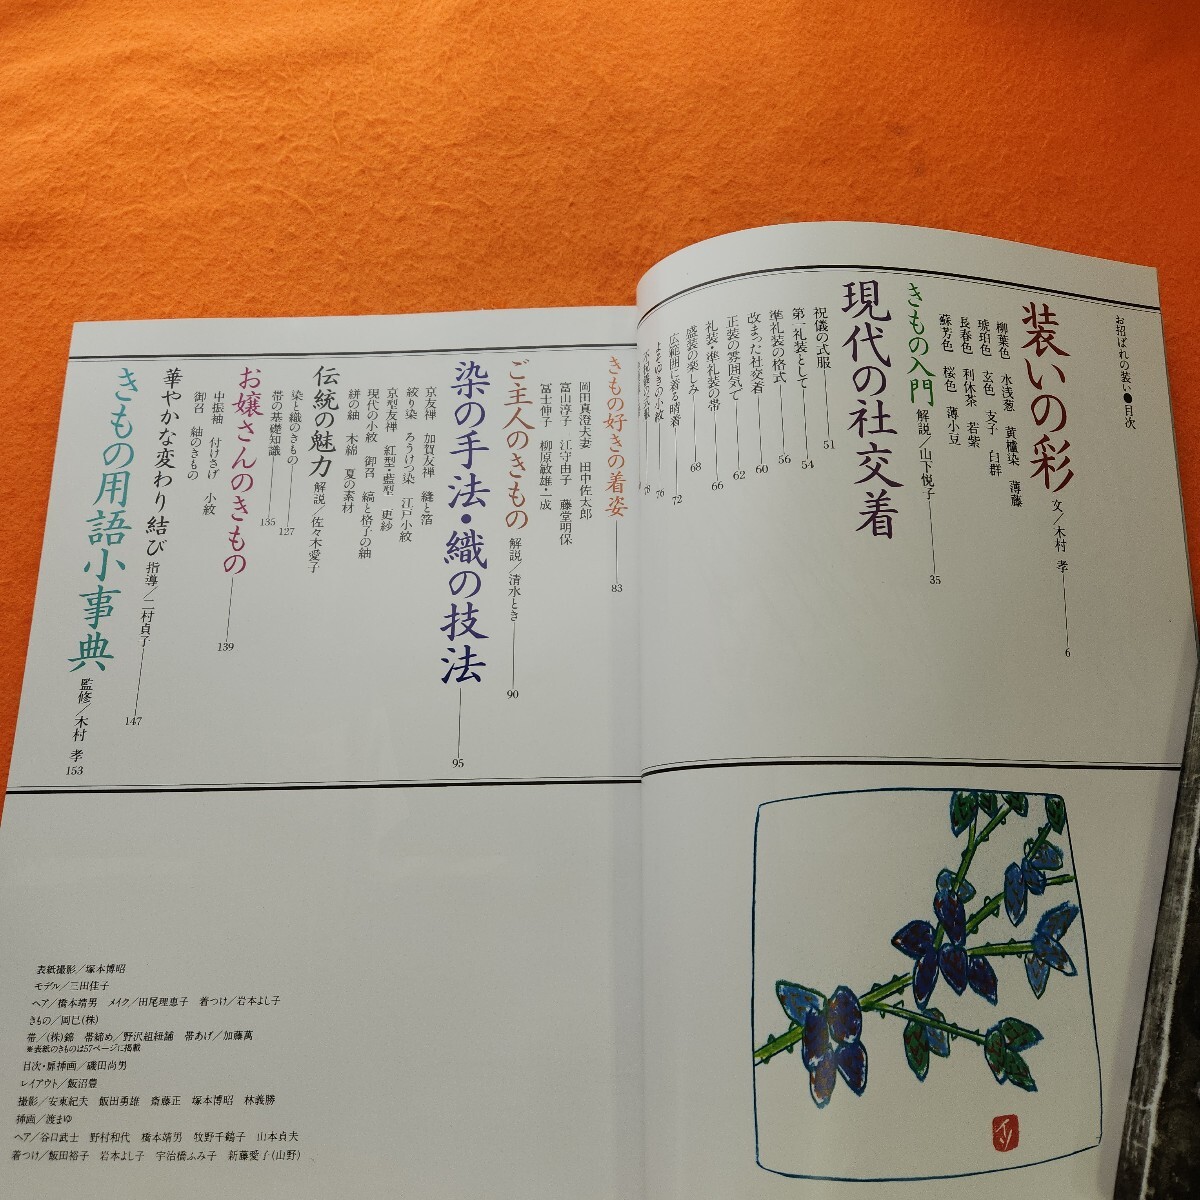 お招ばれの装い●目次
装いの彩 文／木村 孝 6
柳葉色 水浅葱 黄櫨染 薄藤
琥珀色 玄色 支子 白群
長春色 利休茶 若紫
蘇芳色 桜色 薄小豆
きもの入門 解説／山下悦子 35
現代の社交着
祝儀の式服 51
第一礼装として 54
準礼装の格式 56
改まった社交着 60
正装の雰囲気で 62
礼装・準礼装の帯 66
盛装の楽しみ 68
広範囲に着る晴着 72
よそゆきの小紋 76
78
きもの好きの着姿 83
岡田真澄夫妻 田中佐太郎
富山淳子 江守由子 藤堂明保
冨士伸子 柳原敏雄・一成
ご主人のきもの 解説／清水とき 90
染の手法・織の技法 95
京友禅 加賀友禅 縫と箔
絞り染 ろうけつ染 江戸小紋
京型友禅 紅型・藍型 更紗
現代の小紋 御召 縞と格子の紬
絣の紬 木綿 夏の素材
伝統の魅力 解説／佐々木愛子
染と織のきもの 127
帯の基礎知識 135
お嬢さんのきもの 139
中振袖 付けさげ 小紋
御召 紬のきもの
華やかな変わり結び 指導／二村貞子 147
きもの用語小事典 監修／木村 孝 153
表紙撮影／塚本博昭
モデル／三田佳子
ヘア／橋本靖男 メイク／田尾理恵子 着つけ／岩本よし子
きもの／岡巳(株)
帯／(株)錦 帯締め／野沢組紐舗 帯あげ／加藤萬
※表紙のきものは57ページに掲載
目次・扉挿画／磯田尚男
レイアウト／飯沼豊
撮影／安東紀夫 飯田勇雄 斎藤正 塚本博昭 林義勝
挿画／渡まゆ
ヘア／谷口武士 野村和代 橋本靖男 牧野千鶴子 山本貞夫
着つけ／飯田裕子 岩本よし子 宇治橋ふみ子 新藤愛子(山野)